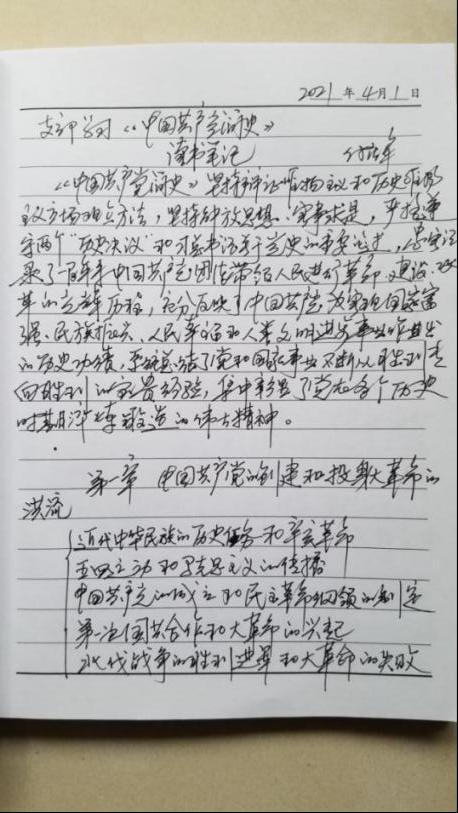 2021年4月1日
支部学习《中国共产党简史》
读书笔记
《中国共产党简史》坚持辩证唯物主义和历史唯物
主义立场观点方法，坚持解放思想、实事求是，严格遵
守两个“历史决议”和习总书记关于党史的重要论述，忠实记
录了一百年来中国共产党团结带领人民进行革命、建设、改
革的光辉历程，充分反映了中国共产党为实现国家富
强、民族振兴、人民幸福和人类文明进步事业作出
的历史功绩，系统总结了党和国家事业不断从胜利走
向胜利的宝贵经验，集中彰显了党在各个历史
时期淬炼锻造的伟大精神。
第一章 中国共产党的创建和投身大革命的
洪流
近代中华民族的历史任务和辛亥革命
五四运动和马克思主义的传播
中国共产党的成立和民主革命纲领的制定
第一次国共合作和大革命的兴起
北伐战争的胜利进军和大革命的失败